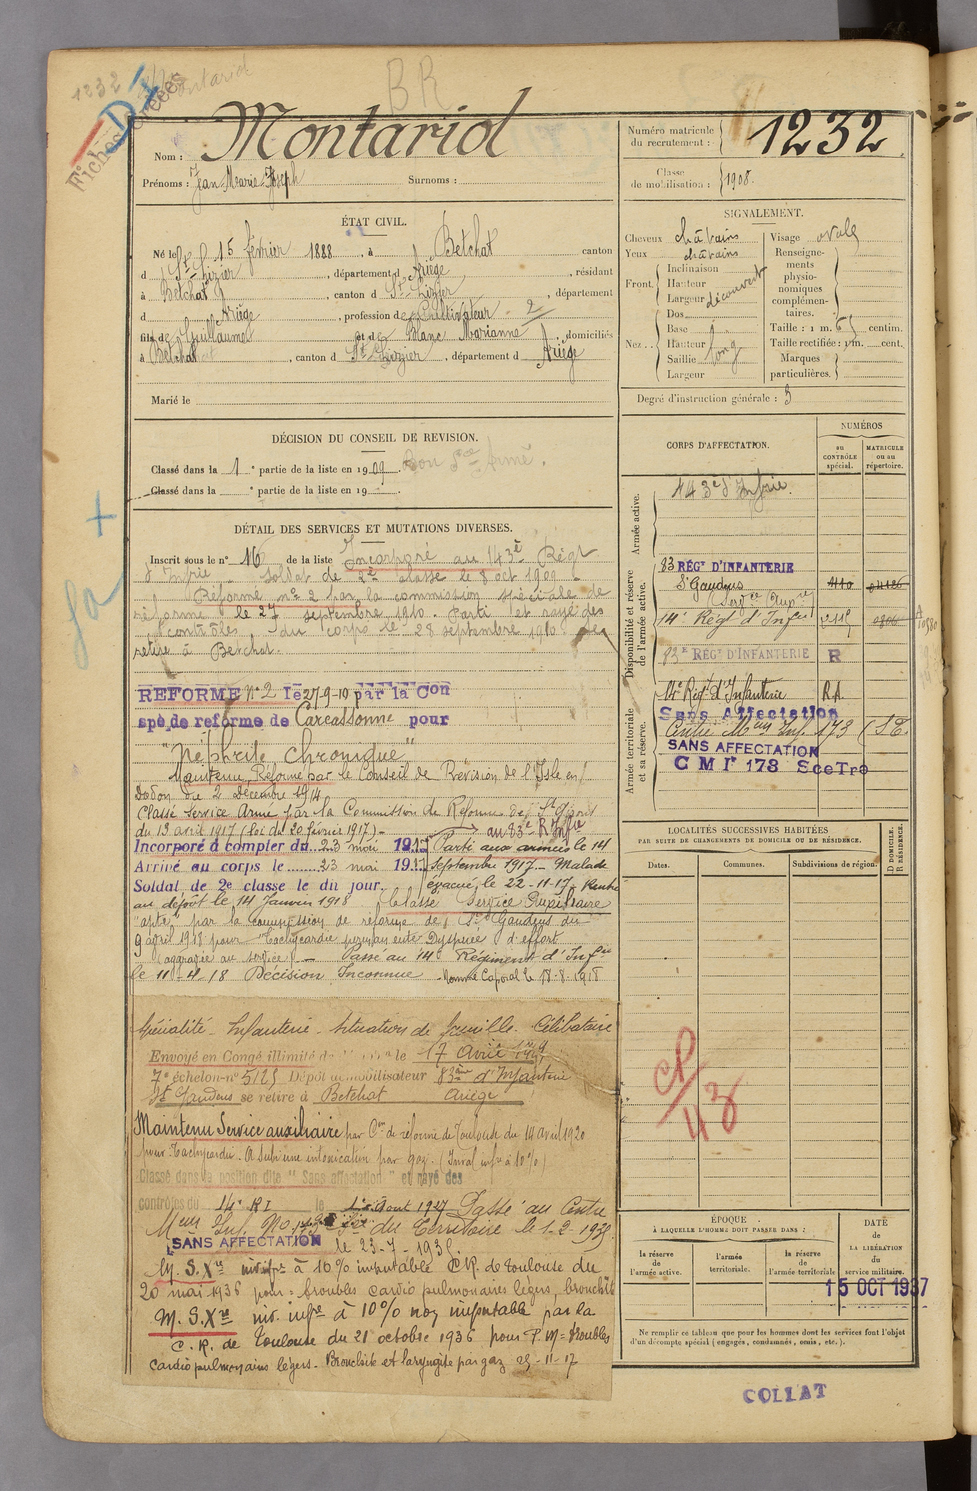 1232
Montariol
Fiches
BR
Nom : Montariol
Prénoms : Jean Marie Joseph Surnoms :
Numéro matricule du recrutement : 1232
Classe de mobilisation : 1908.
ÉTAT CIVIL.
Né le 15 février 1888, à Betchat canton
d St Lizier, département d Ariège, résidant
à Betchat, canton d St Lizier, département
d Ariège, profession de Cultivateur 2
fils de Guillaume et de Blanc Marianne, domiciliés
à Betchat, canton d St Lizier, département d Ariège
Marié le
SIGNALEMENT.
Cheveux châtains
Yeux châtains
Front. Inclinaison
Hauteur
Largeur découvert
Nez. Dos
Base
Hauteur
Saillie long
Largeur
Visage ovale
Renseignements physionomiques complémentaires.
Taille : 1 m. 65 centim.
Taille rectifiée : 1 m. cent.
Marques particulières.
Degré d'instruction générale : 3
DÉCISION DU CONSEIL DE REVISION.
Classé dans la 1e partie de la liste en 1909. Bon Sce Armé.
Classé dans la e partie de la liste en 19
DÉTAIL DES SERVICES ET MUTATIONS DIVERSES.
Inscrit sous le n° 16 de la liste Incorporé au 143e Régt
d'Infrie soldat de 2e classe le 8 oct 1909
Réformé n° 2 par la commission spéciale de
réforme le 27 septembre 1910. Parti et rayé des
contrôles du corps le 28 septembre 1910 se
retire à Betchat.
REFORME N° 2 le 27-9-10 par la Con
spéde de reforme de Carcassonne pour
"Néphrite chronique"
Maintenu Réformé par le Conseil de Revision de l'Isle en
Dodon du 2 Décembre 1914
Classé service Armé par la Commission de Réforme de St Gaudens
du 13 avril 1917 (Loi du 20 février 1917) au 83e R Infie
Incorporé à compter du 23 mai 1917 Parti aux armées le 14
Arrivé au corps le 23 mai 1917 septembre 1917. Malade
Soldat de 2e classe le dit jour. évacué le 22-11-17. Rentré
au dépôt le 14 Janvier 1918 Classé Service Auxiliaire
"apte" par la Commission de réforme de St Gaudens du
9 avril 1918 pour "Tachycardie permanente Dyspnée d'effort
(aggravée au service) - Passé au 14e Régiment d'Infie
le 11-4-18 Décision Inconnue - Nommé Caporal le 18-8-1918
Spécialité - Infanterie - Situation de famille. Célibataire
Envoyé en Congé illimité de le 17 Avril 1919
7e échelon n° 5125 Dépôt démobilisateur 83ème d'Infanterie
St Gaudens se retire à Betchat Ariège
Maintenu Service auxiliaire par Con de réforme de Toulouse du 14 avril 1920
pour : Tachycardie. A subi une intoxication par gaz. (Inval. infre à 10%)
Classé dans la position dite "Sans affectation" et rayé des
contrôles du 14e RI le 1er Août 1927 Passé au Centre
Meur Inf. N° 173 Sce du Territoire le 1-2-1935.
SANS AFFECTATION le 23-7-1935.
M. S. Xre inv. infre à 10% imputable C.R. de Toulouse du
20 mai 1936 pour : troubles cardio pulmonaires légers, bronchite
M. S. Xre inv. infre à 10% non imputable par la
C. R. de Toulouse du 21 octobre 1936 pour P.M= Troubles
cardio pulmonaires légers. Bronchite et laryngite par gaz 25-11-17
CORPS D'AFFECTATION.
NUMÉROS
au CONTRÔLE spécial.
MATRICULE ou au répertoire.
Armée active.
143e d'Infrie.
Disponibilité et réserve de l'armée active.
83 RÉGt D'INFANTERIE
St Gaudens
14e Régt d'Infie
83e RÉGt D'INFANTERIE R
Armée territoriale et sa réserve.
14e Régt d'Infanterie R.A.
Sans Affectation
Centre Meur Inf. 173 (S.T.
SANS AFFECTATION
CMIe 173 Sce Tre
LOCALITÉS SUCCESSIVES HABITÉES
PAR SUITE DE CHANGEMENTS DE DOMICILE OU DE RÉSIDENCE.
Dates.
Communes.
Subdivisions de région.
D DOMICILE.
R RÉSIDENCE.
ÉPOQUE
À LAQUELLE L'HOMME DOIT PASSER DANS :
la réserve de l'armée active.
l'armée territoriale.
la réserve de l'armée territoriale
DATE de LA LIBÉRATION du service militaire.
15 OCT 1937
Ne remplir ce tableau que pour les hommes dont les services font l'objet
d'un décompte spécial (engagés, condamnés, omis, etc.).
COLLAT